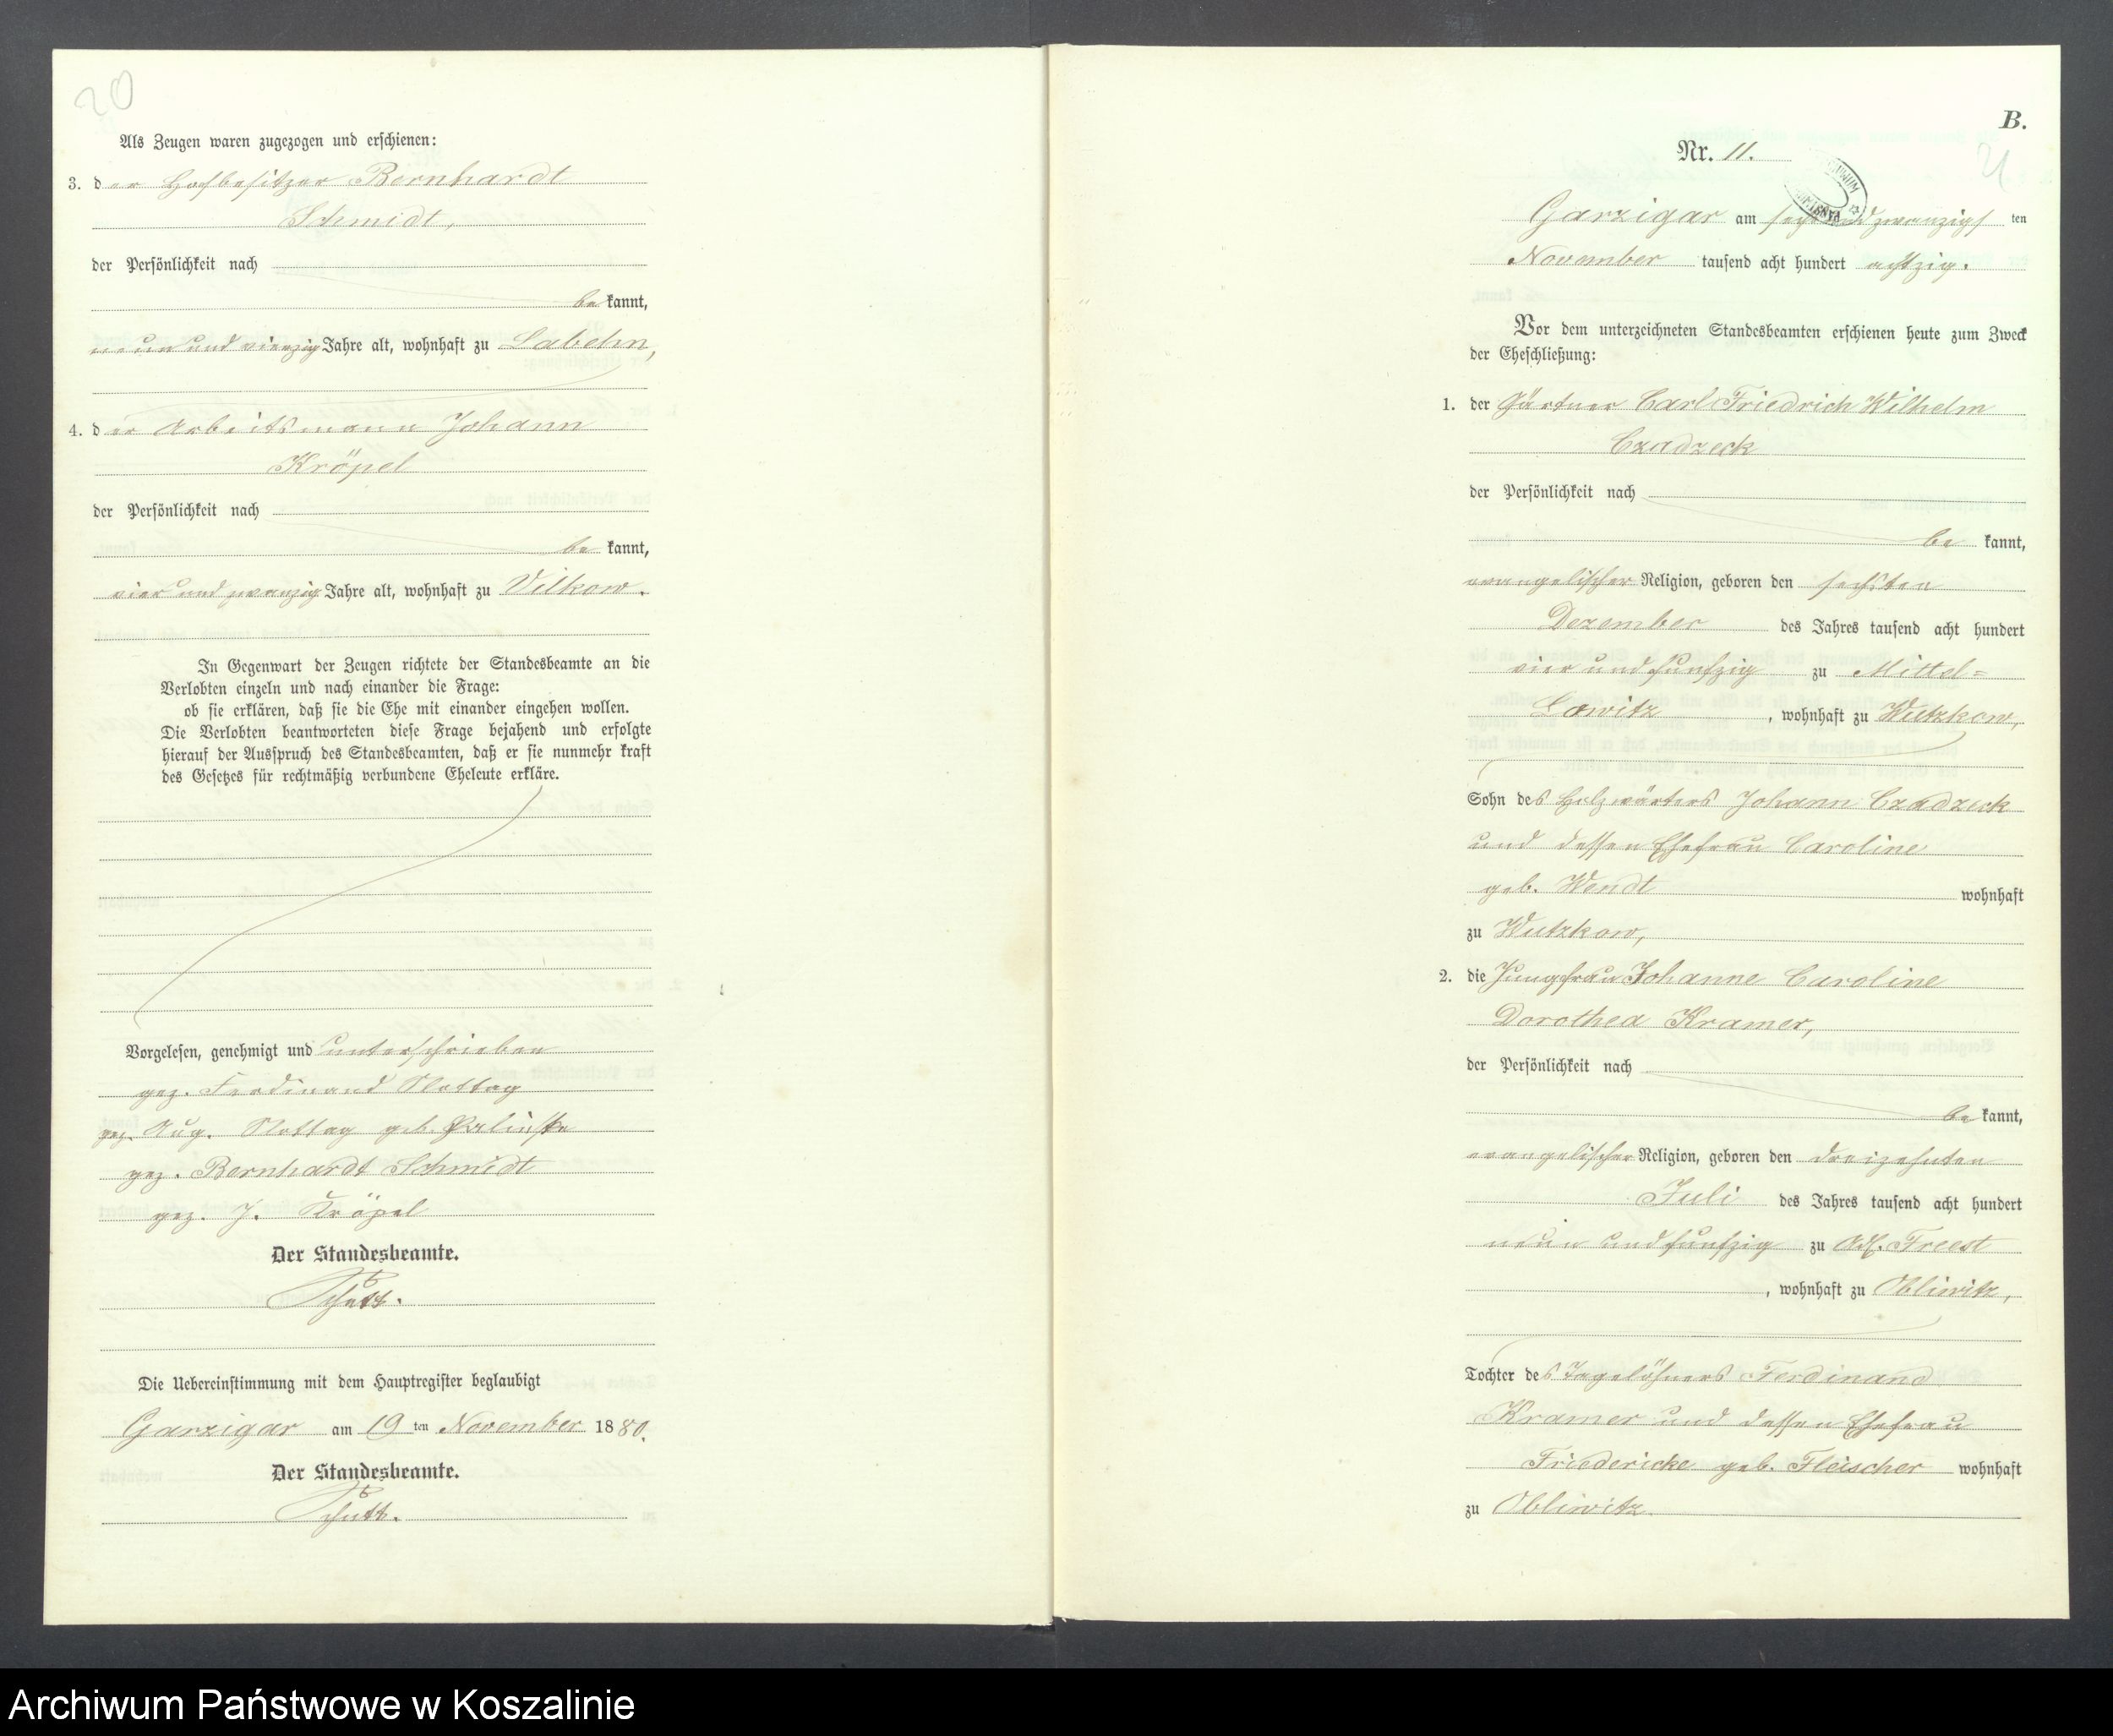 20
Als Zeugen waren zugezogen und erschienen:
3. der Hofbesitzer Bernhardt
Schmidt,
der Persönlichkeit nach
be kannt,
neun und vierzig Jahre alt, wohnhaft zu Labehn,
4. der Arbeitsmann Johann
Kröpel
der Persönlichkeit nach
be kannt,
vier und zwanzig Jahre alt, wohnhaft zu Vilkow.
In Gegenwart der Zeugen richtete der Standesbeamte an die
Verlobten einzeln und nach einander die Frage:
ob sie erklären, daß sie die Ehe mit einander eingehen wollen.
Die Verlobten beantworteten diese Frage bejahend und erfolgte
hierauf der Ausspruch des Standesbeamten, daß er sie nunmehr kraft
des Gesetzes für rechtmäßig verbundene Eheleute erkläre.
Vorgelesen, genehmigt und unterschrieben
gez. Ferdinand
gez. Aug. geb.
gez. Bernhardt Schmidt
gez. J. Kröpel
Der Standesbeamte.
Die Uebereinstimmung mit dem Hauptregister beglaubigt
Garzigar am 19 ten November 1880.
Der Standesbeamte.
B.
21
Nr. 11.
Garzigar am sechs und zwanzigs ten
November tausend acht hundert achtzig.
Vor dem unterzeichneten Standesbeamten erschienen heute zum Zweck
der Eheschließung:
1. der Gärtner Carl Friedrich Wilhelm
Czadzeck
der Persönlichkeit nach
be kannt,
evangelischer Religion, geboren den sechsten
Dezember des Jahres tausend acht hundert
vier und funfzig zu Mittel=
Lowitz, wohnhaft zu Wutzkow,
Sohn des Holzwärters Johann Czadzeck
und dessen Ehefrau Caroline
geb. Wendt wohnhaft
zu Wutzkow,
2. die Jungfrau Johanne Caroline
Dorothea Kramer,
der Persönlichkeit nach
be kannt,
evangelischer Religion, geboren den dreizehnten
Juli des Jahres tausend acht hundert
neun und funfzig zu Adl. Freest
, wohnhaft zu Obliwitz,
Tochter des Tagelöhners Ferdinand
Kramer und dessen Ehefrau
Friedericke geb. Fleischer wohnhaft
zu Obliwitz.
Archiwum Państwowe w Koszalinie